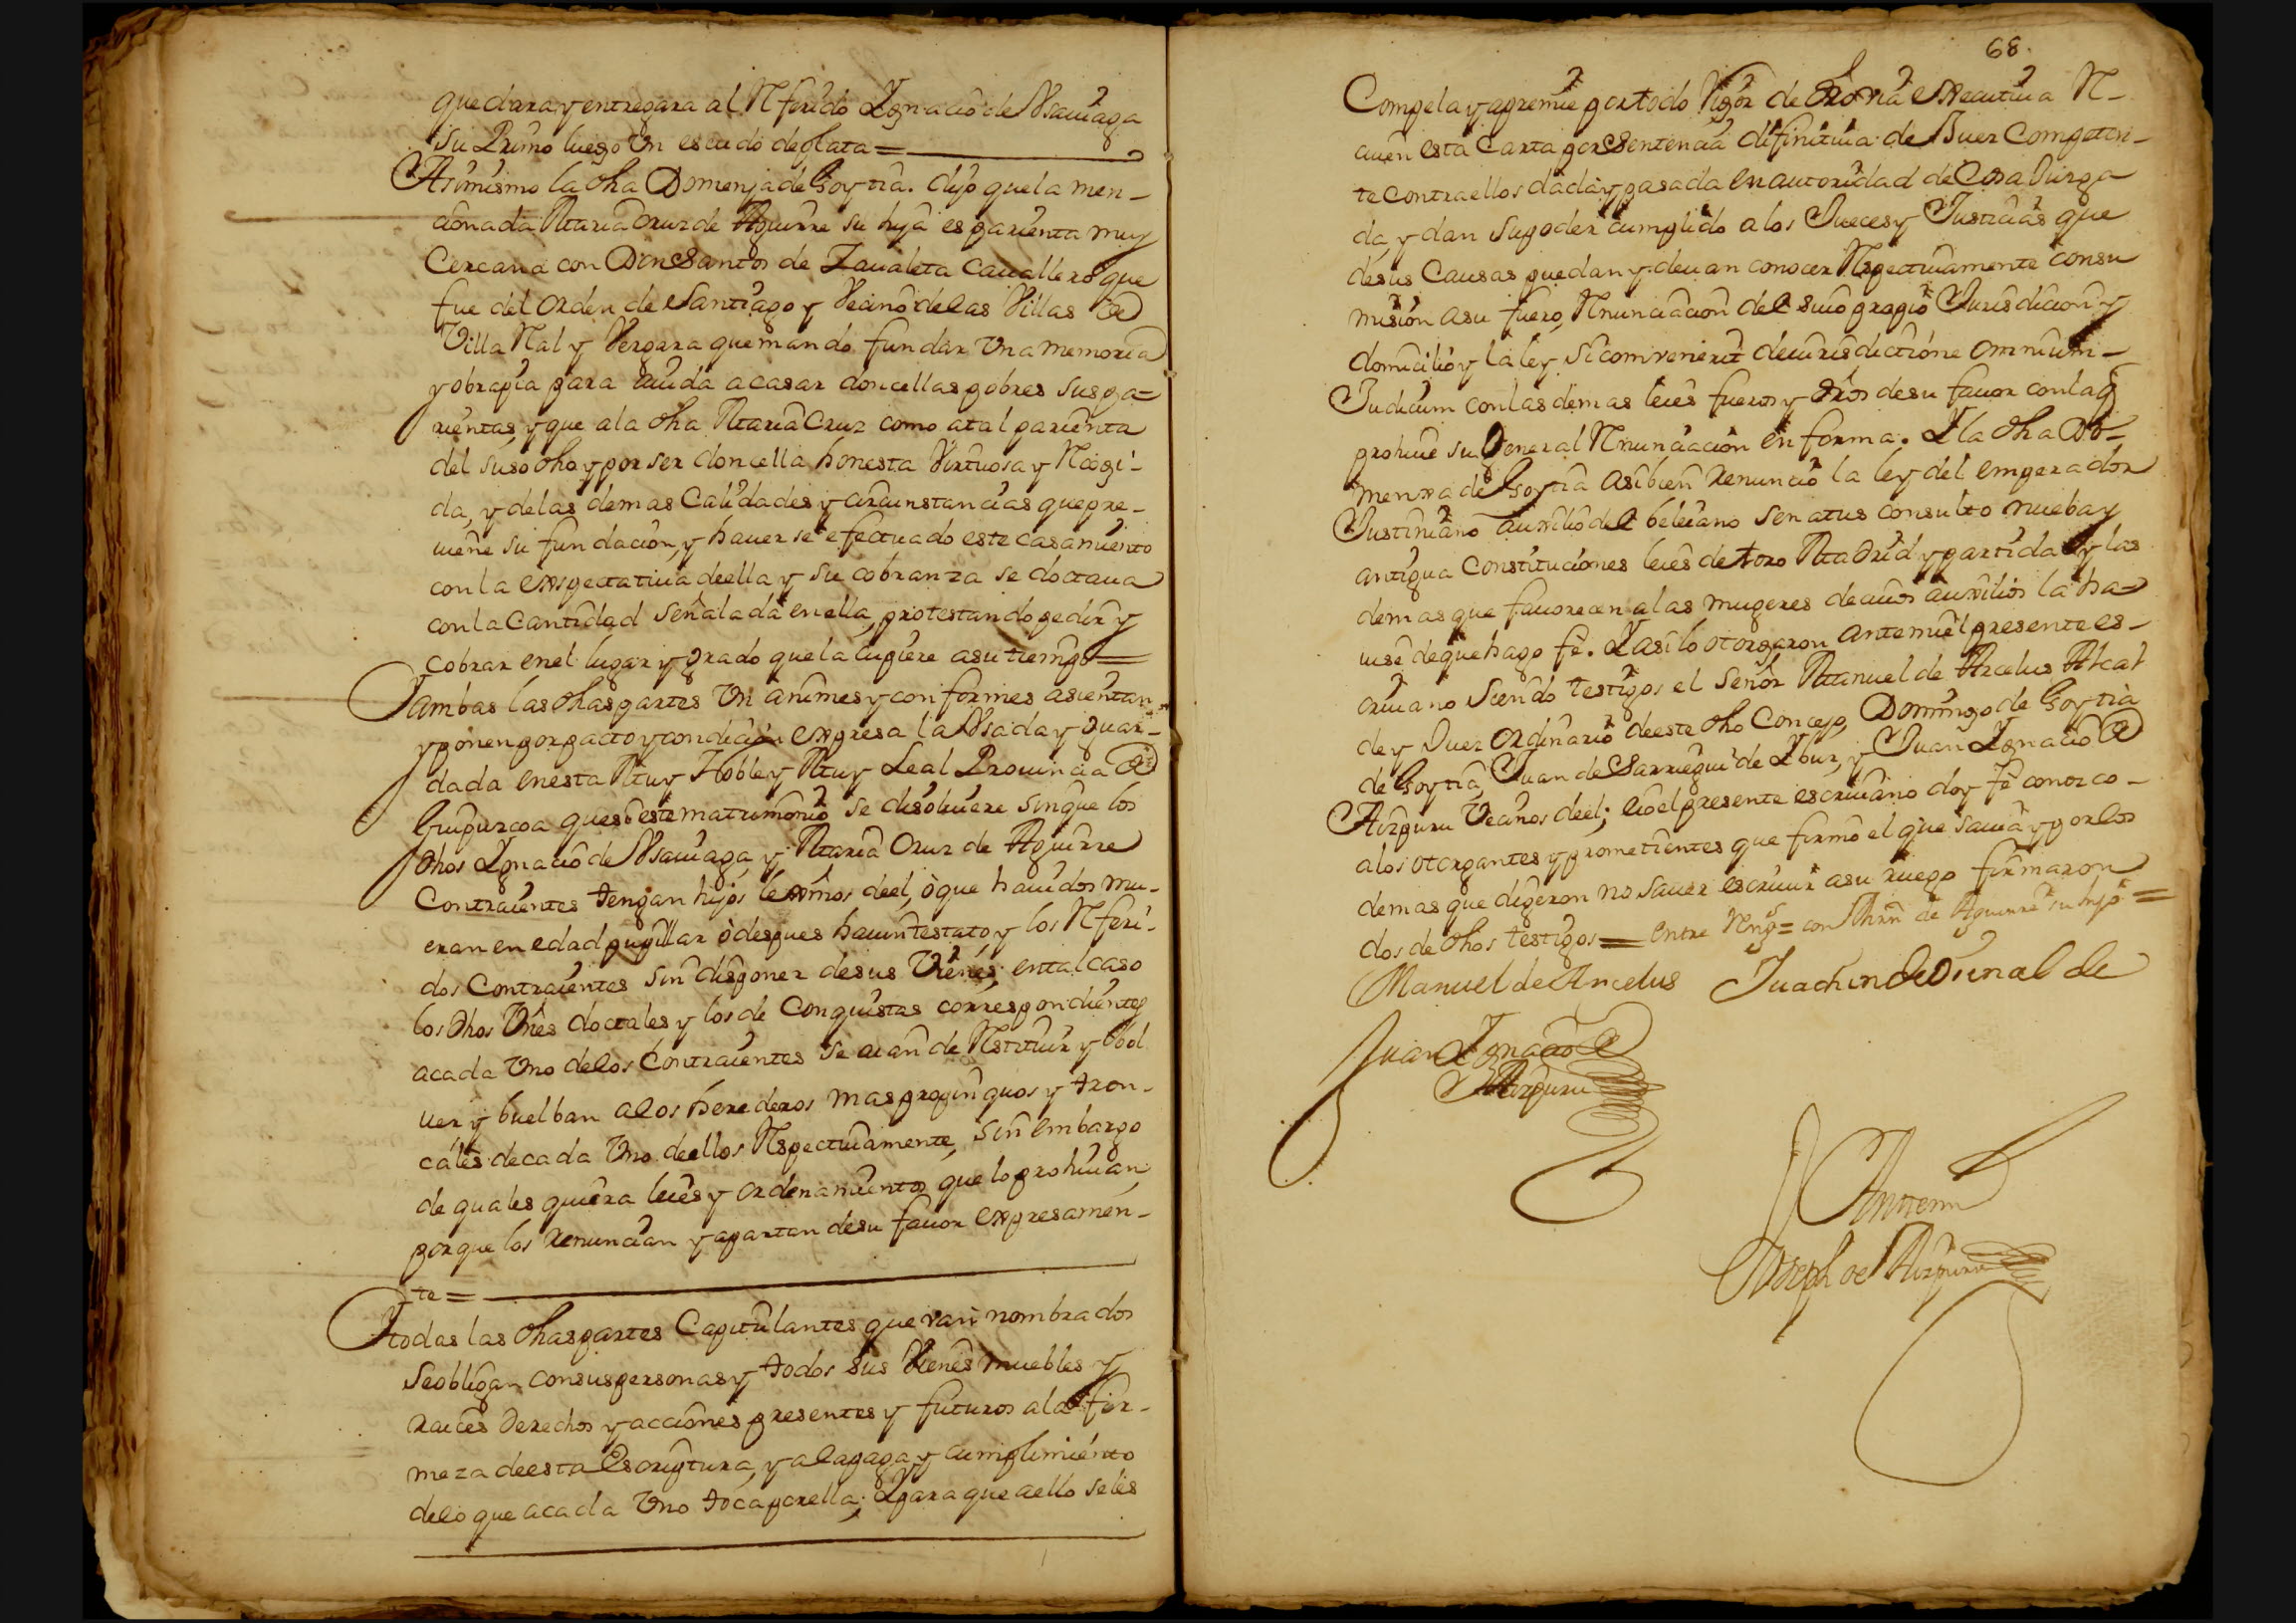 que dara y entregara al Referido Ygnacio de Vsauiaga
su Primo luego Vn escudo de plata =
Asimismo la dha Domenja de Goytia. dijo que la men-
cionada Maria Cruz de Aguirre su hija es parienta muy
Cercana con Don Santos de Zaualeta Cauallero que
fue del orden de Santiago y Vecino de las Villas de
Villa Real y Vergara que mando fundar Vna memoria
y obrapia para aiuda a casar doncellas pobres sus pa=
rientas, y que a la dha Maria Cruz como a tal parienta
del suso dho y por ser doncella honesta Virtuosa y Recogi-
da, y de las demas Calidades y circunstancias que pre-
uiene su fundacion, y hauerse efectuado este casamiento
con la expectatiua de ella y su cobranza se doctaua
con la Cantidad señalada en ella, protestando pedir y
cobrar en el lugar y grado que la cupiere a su tiempo =
Y ambas las dhas partes Vnanimes y conformes asientan
y ponen por pacto y condicion expresa la Vsada y guar-
dada en esta Muy Noble y Muy Leal Prouincia de
Guipuzcoa que si este matrimonio se disoluiere sin que los
dhos Ygnacio de Vsauiaga, y Maria Cruz de Aguirre
Contraientes tengan hijos lexmos de el, ò que hauidos mu-
eran en edad pupillar ò despues hauintestato y los Referi-
dos Contraientes sin disponer de sus Vienes; en tal caso
los dhos Vnes doctales y los de Conquistas correspondientes
a cada Vno de los Contraientes se aian de Restituir y Vol
uer y buelban a los herederos mas propinquos y tron-
cales de cada Vno de ellos Respectiuamente, sin embargo
de quales quiera leies y ordenamientos que lo prohiuan,
porque los renuncian y apartan de su fauor expresamen-
te =
Y todas las dhas partes Capitulantes que van nombrados
se obligan con sus personas y todos sus Vienes muebles y
raices derechos y acciones presentes y futuros a la fir-
meza de esta Escriptura, y a la paga y cumplimiento
de lo que a cada Vno toca por ella; Y para que a ello se les
68.
Compela y apremie por todo Rigor de executiua Re-
ciuen esta Carta por Sentencia difinitiua de Juez Competen-
te contra ellos dada y pasada en autoridad de Cosa Juzga
da, y dan su poder cumplido a los Jueces y Justicias que
de sus Causas puedan y deuan conocer Respectiuamente con su
mision a su fuero, Renunciacion del suio propio Jurisdicion y
domicilio y la ley si combenerit de iurisdictione omnium-
Judicum con las demas leies fueros y dros de su fauor con la q
prohiue su General Renunciacion en forma. Y la dha Do-
menxa de Goytia asi bien renuncio la ley del emperador
Justiniano auxilio del beleiano senatus consulto nueba y
antigua Constituciones leies de toro Madrid y partida y las
demas que fauorecen a las mugeres de cuios auxilios la ha=
uisé de que hago fè. Y asi lo otorgaron ante mi el presente es-
criuano Siendo testigos el Señor Manuel de Arcelus Alcal
de y Juez ordinario de este dho Concejo, Domingo de Goytia
de Goytia, Juan de Sarriegui de Ybur, y Juan Ygnacio de
Aizpuru Vecinos de el; e io el presente escriuano doy fè conozco-
a los otorgantes y prometientes que firmo el que sauia y por los
demas que digeron no sauer escriuir a su ruego firmaron
dos de dhos testigos = entre Rengs = con Mrn de Aguirre su hijo =
Manuel de Arcelus Juachin de
Juan Ygnacio de
Aizpuru
Antemi
Joseph de Aizpuru